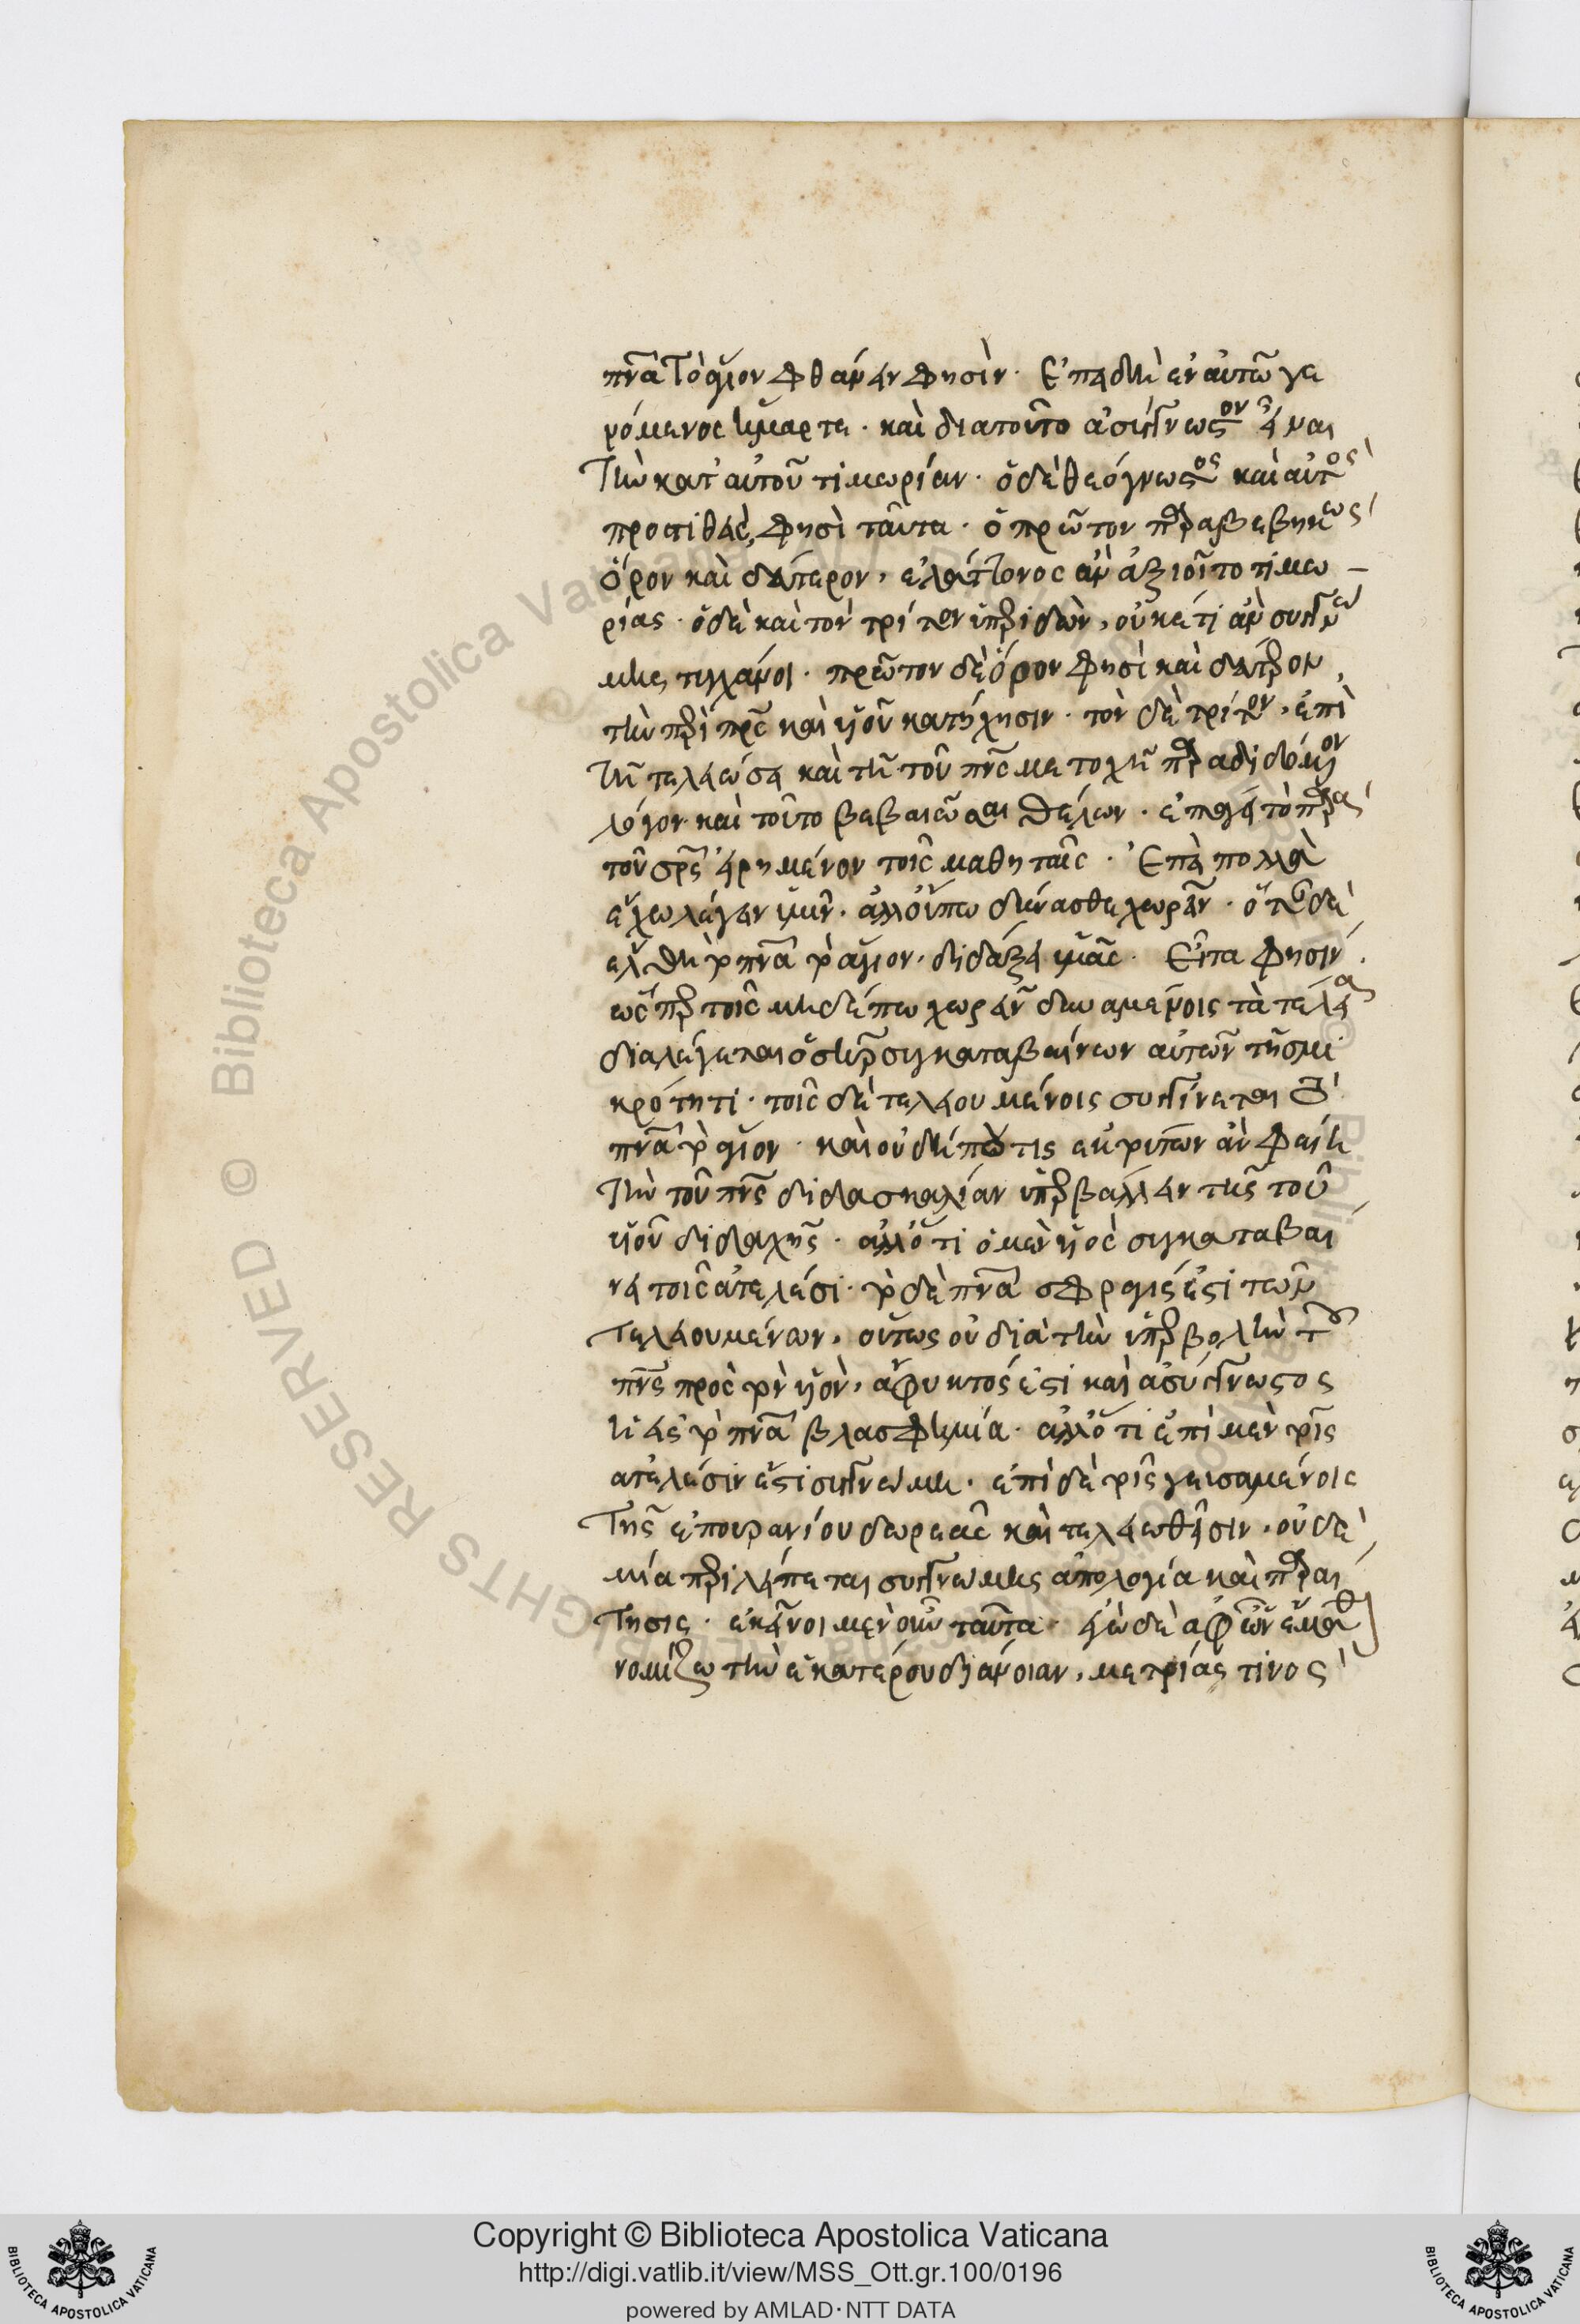 πν̅α τὸ ἅγιον φθάνειν φησίν· Ἐπειδὴ ἐν αὐτῶ γε
νόμενος ἥμαρτε· καὶ διατοῦτο ἀσύγγνωστον εἶναι
τὴν κατ' αὐτοῦ τιμωρίαν· ὁ δὲ θεόγνωστος καὶ αὐτὸς
προστιθεὶς, φησὶ ταῦτα· ὁ πρῶτον παραβεβηκὼς
ὅρον καὶ δεύτερον, ἐλάττονος ἂν ἀξιοῖτο τιμω
ρίας· ὁ δὲ καὶ τὸν τρίτον ὑπεριδὼν, οὐκέτι ἂν συγγνώ
μης τυγχάνοι· πρῶτον δὲ ὅρον φησὶ καὶ δεύτερον,
τὴν περὶ πρ̅ς καὶ υἱοῦ κατήχησιν· τὸν δὲ τρίτον, ἐπὶ
τῆ τελειώσει καὶ τῆ τοῦ πν̅ς μετοχῆ παραδιδόμενον
λόγον· καὶ τοῦτο βεβαιῶσαι θέλων· ἐπάγει τὸ παρὰ
τοῦ σρ̅ς εἰρημένον τοῖς μαθηταῖς· Ἔτι πολλὰ
ἔχω λέγειν ὑμῖν· ἀλλ' οὔπω δύνασθε χωρεῖν· ὅταν δὲ
ἔλθη τὸ πν̅α τὸ ἅγιον, διδάξει ὑμᾶς· Εἶτα φησίν,
ὥσπερ τοῖς μηδέπω χωρεῖν δυναμένοις τὰ τέλεια
διαλέγεται ὁ σωτὴρ συγκαταβαίνων αὐτῶν τῆ σμι
κρότητι· τοῖς δὲ τελειουμένοις συγγίνεται τὸ
πν̅α τὸ ἅγιον· καὶ οὐ δήπου τις ἐκ τούτων ἂν φαίη
τὴν τοῦ πν̅ς διδασκαλίαν ὑπερβάλλειν τῆς τοῦ
υἱοῦ διδαχῆς· ἀλλ' ὅτι ὁ μὲν υἱὸς συγκαταβαί
νει τοῖς ἀτελέσι· τὸ δὲ πν̅α σφραγίς ἐστι τῶν
τελειουμένων, οὕτως οὐ διὰ τὴν ὑπερβολὴν τοῦ
πν̅ς πρὸς τὸν υἱὸν, ἄφυκτός ἐστι καὶ ἀσύγγνωστος
ἡ εἰς τὸ πν̅α βλασφημία· ἀλλ' ὅτι ἐπὶ μὲν τοῖς
ἀτελέσιν ἐστὶ συγγνώμη· ἐπὶ δὲ τοῖς γευσαμένοις
τῆς ἐπουρανίου δωρεᾶς καὶ τελειωθεῖσιν, οὐδε
μία περιλείπεται συγγνώμης ἀπολογία καὶ παραί
τησις· ἐκεῖνοι μὲν οὖν ταῦτα· ἐγὼ δὲ ἀφ' ὧν ἔμαθον
νομίζω τὴν ἑκατέρου διάνοιαν, μετρίας τινος